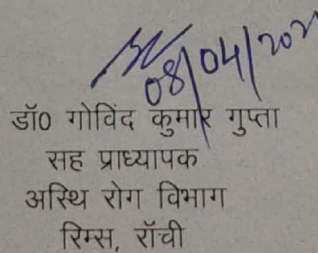 08/04/202
डॉ0 गोविंद कुमार गुप्ता
सह प्राध्यापक
अस्थि रोग विभाग
रिम्स, राँची